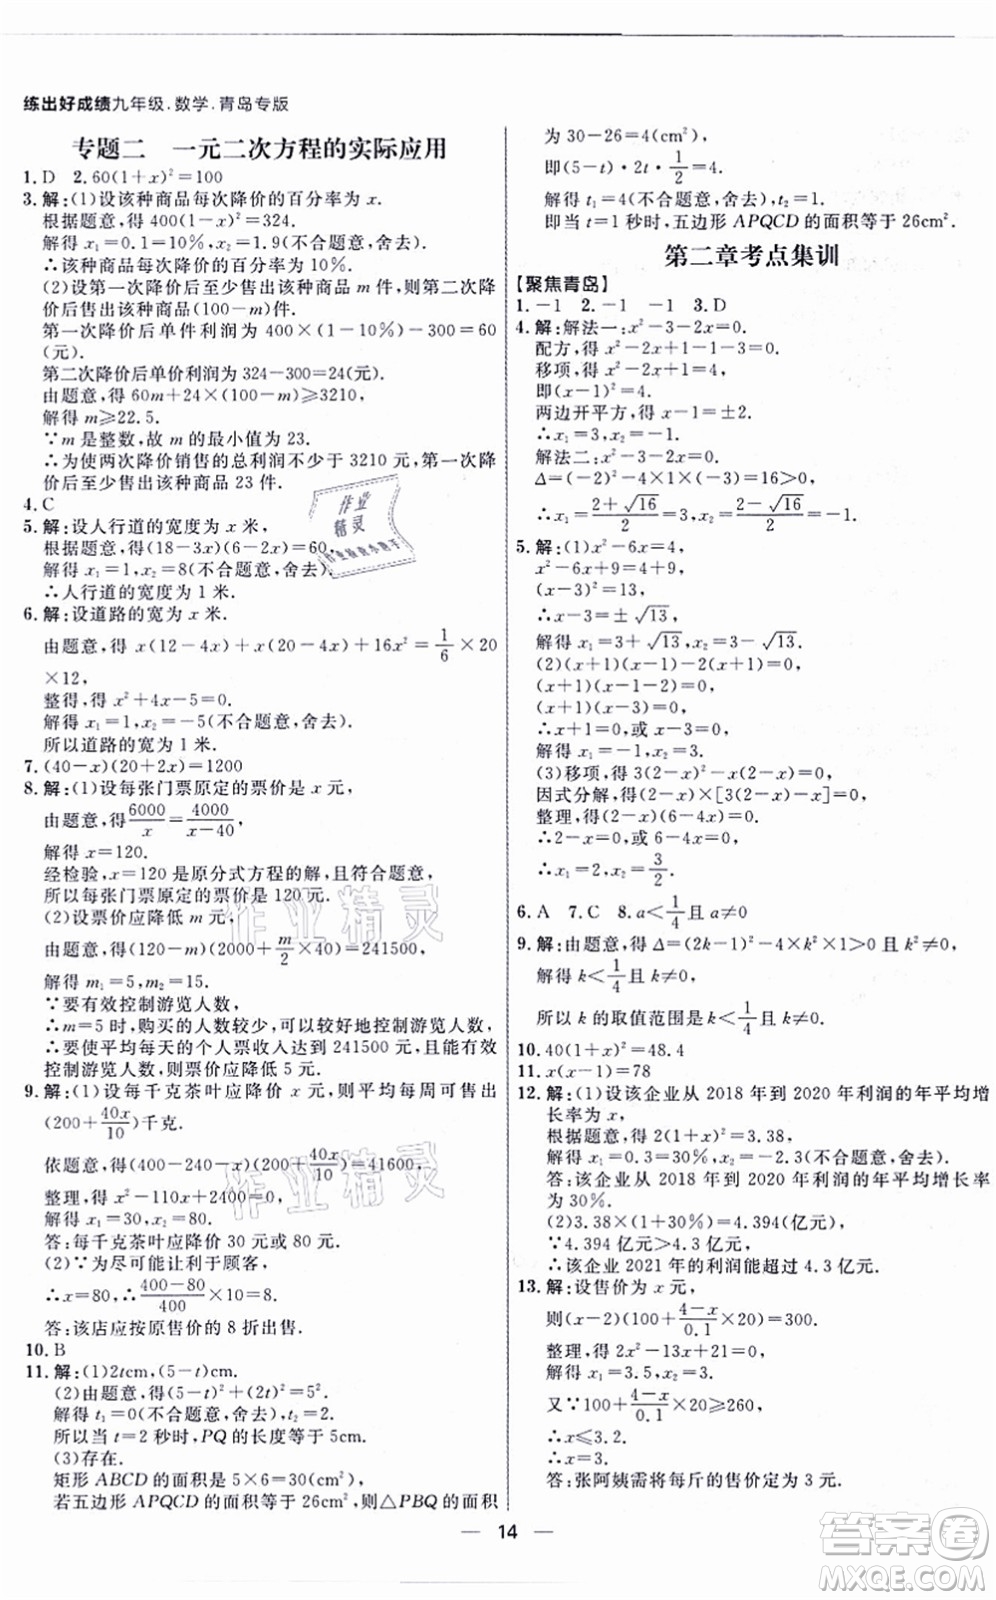 练出好成绩九年级.数学.青岛专版
专题二　一元二次方程的实际应用
1. D　2. 60(1+x)²=100
3. 解:(1)设该种商品每次降价的百分率为 x.
根据题意,得 400(1-x)²=324.
解得 x₁=0.1=10%, x₂=1.9(不合题意,舍去).
∴该种商品每次降价的百分率为 10%.
(2)设第一次降价后至少售出该种商品 m 件,则第二次降价后至少售出该种商品(100-m)件.
第一次降价后单件利润为 400×(1-10%)-300=60
(元).
第二次降价后单价利润为 324-300=24(元).
由题意,得 60m+24×(100-m)≥3210,
解得 m≥22.5.
∵m 是整数,故 m 的最小值为 23.
∴为使两次降价销售的总利润不少于 3210 元,第一次降价后至少售出该种商品 23 件.
4. C
5. 解:设人行道的宽度为 x 米,
根据题意,得(18-3x)(6-2x)=60,
解得 x₁=1, x₂=8(不合题意,舍去).
∴人行道的宽度为 1 米.
6. 解:设道路的宽为 x 米.
由题意,得 x(12-4x)+x(20-4x)+16x²=1/6×20
×12,
整理,得 x²+4x-5=0.
解得 x₁=1, x₂=-5(不合题意,舍去).
所以道路的宽为 1 米.
7. (40-x)(20+2x)=1200
8. 解:(1)设每张门票原定的票价是 x 元,
由题意,得6000/x=4000/(x-40),
解得 x=120.
经检验, x=120 是原分式方程的解,且符合题意,
所以每张门票原定的票价是 120 元.
(2)设票价应降低 m 元,
由题意,得(120-m)(2000+m/2×40)=241500,
解得 m₁=5, m₂=15.
∵要有效控制游览人数,
∴m=5 时,购买的人数较少,可以较好地控制游览人数,
∴要使平均每天的个人票收入达到 241500 元,且能有效控制游览人数,票价应降低 5 元.
9. 解:(1)设每千克茶叶应降价 x 元,则平均每周可售出
(200+40x/10)千克.
依题意,得(400-240-x)(200+40x/10)=41600,
整理,得 x²-110x+2400=0,
解得 x₁=30, x₂=80.
答:每千克茶叶应降价 30 元或 80 元.
(2)∵为尽可能让利于顾客,
∴x=80,∴(400-80)/400×10=8.
答:该店应按原售价的 8 折出售.
10. B
11. 解:(1)2tcm,(5-t)cm.
(2)由题意,得(5-t)²+(2t)²=5²,
解得 t₁=0(不合题意,舍去), t₂=2.
所以当 t=2 秒时, PQ 的长度等于 5cm.
(3)存在.
矩形 ABCD 的面积是 5×6=30(cm²),
若五边形 APQCD 的面积等于 26cm²,则△PBQ 的面积
为 30-26=4(cm²),
即(5-t)·2t·1/2=4.
解得 t₁=4(不合题意,舍去), t₂=1.
即当 t=1 秒时,五边形 APQCD 的面积等于 26cm².
第二章考点集训
【聚焦青岛】
1. -1　2. -1　-1　3. D
4. 解:解法一:x²-3-2x=0.
配方,得 x²-2x+1-1-3=0.
移项,得 x²-2x+1=4.
即(x-1)²=4.
两边开平方,得 x-1=±2.
∴x₁=3, x₂=-1.
解法二:x²-3-2x=0.
Δ=(-2)²-4×1×(-3)=16>0,
∴x₁=(2+√16)/2=3, x₂=(2-√16)/2=-1.
5. 解:(1)x²-6x=4,
x²-6x+9=4+9,
(x-3)²=13,
∴x-3=±√13,
解得 x₁=3+√13, x₂=3-√13.
(2)(x+1)(x-1)-2(x+1)=0,
(x+1)(x-1-2)=0,
(x+1)(x-3)=0,
∴x+1=0,或 x-3=0,
解得 x₁=-1, x₂=3.
(3)移项,得 3(2-x)²-x(2-x)=0.
因式分解,得(2-x)×[3(2-x)-x]=0.
整理,得(2-x)(6-4x)=0.
∴2-x=0,或 6-4x=0.
∴x₁=2, x₂=3/2.
6. A　7. C　8. a<1/4且 a≠0
9. 解:由题意,得 Δ=(2k-1)²-4×k²×1>0且 k²≠0,
解得 k<1/4且 k≠0,
所以 k 的取值范围是 k<1/4且 k≠0.
10. 40(1+x)²=48.4
11. x(x-1)=78
12. 解:(1)设该企业从 2018 年到 2020 年利润的年平均增长率为 x,
根据题意,得 2(1+x)²=3.38,
解得 x₁=0.3=30%, x₂=-2.3(不合题意,舍去).
答:该企业从 2018 年到 2020 年利润的年平均增长率为 30%.
(2)3.38×(1+30%)=4.394(亿元),
∵4.394 亿元>4.3 亿元,
∴该企业 2021 年的利润能超过 4.3 亿元.
13. 解:设售价为 x 元,
则(x-2)(100+(4-x)/0.1×20)=300.
整理,得 2x²-13x+21=0.
解得 x₁=3.5, x₂=3.
又∵100+(4-x)/0.1×20≥260,
∴x≤3.2.
∴x=3.
答:张阿姨需将每斤的售价定为 3 元.
14
作业精灵
作业精灵
作业精灵
答案圈
MXQE.COM